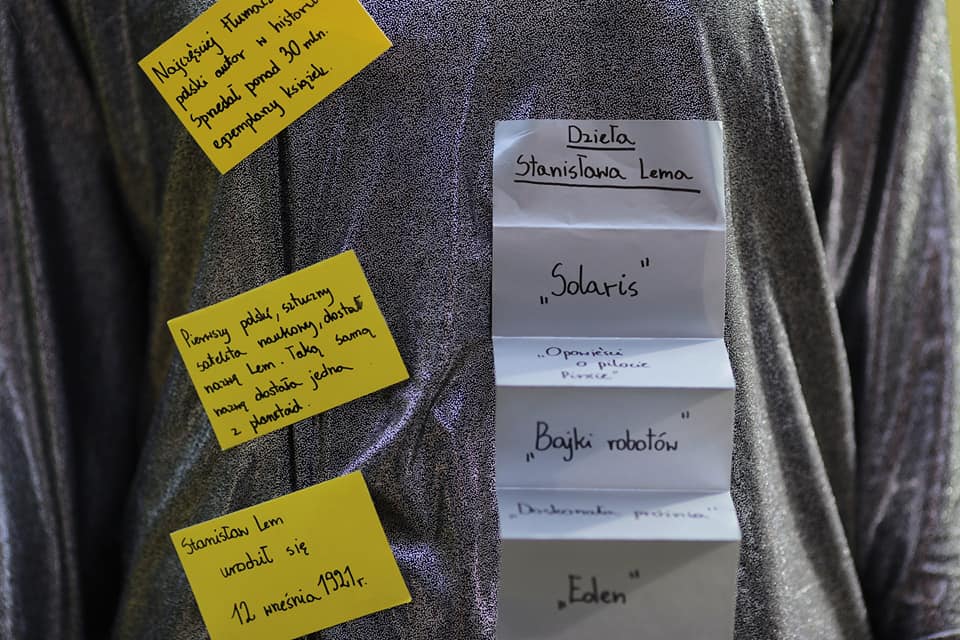 Najczęściej tłumacz
polski autor w historii
Sprzedał ponad 30 mln.
egzemplarzy książek.
Pierwszy polski, sztuczny
satelita naukowy, dostał
nazwę Lem. Taką samą
nazwę dostała jedna
z planetoid.
Stanisław Lem
urodził się
12 września 1921 r.
Dzieła
Stanisława Lema
„Solaris"
„Opowieści
o pilocie
Pirxie"
„Bajki robotów"
„Doskonała próżnia"
„Eden"